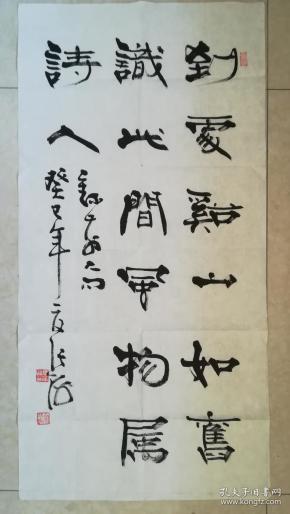 到處谿山如舊
識此間風物屬
詩人
癸巳年夏張
孔夫子旧书网